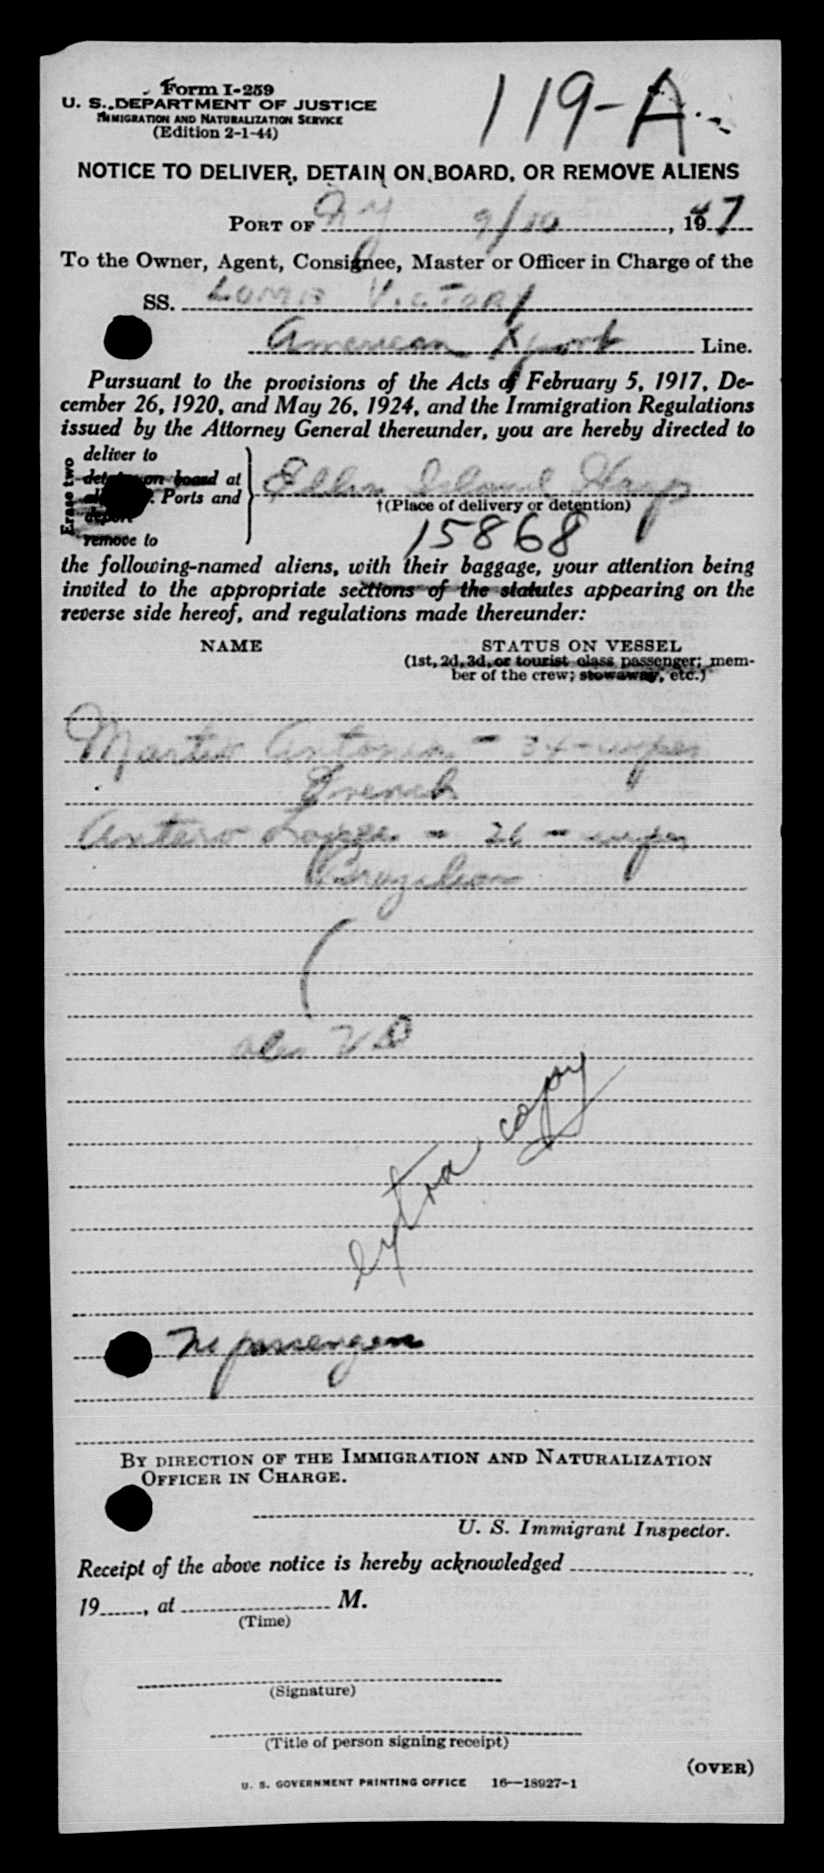 Form I-259
119-A
U. S. DEPARTMENT OF JUSTICE
IMMIGRATION AND NATURALIZATION SERVICE
(Edition 2-1-44)
NOTICE TO DELIVER, DETAIN ON BOARD, OR REMOVE ALIENS
PORT OF NY 9/10, 1947
To the Owner, Agent, Consignee, Master or Officer in Charge of the
SS. Victory
American Export Line.
Pursuant to the provisions of the Acts of February 5, 1917, De-
cember 26, 1920, and May 26, 1924, and the Immigration Regulations
issued by the Attorney General thereunder, you are hereby directed to
Erase two
deliver to
detain on board at
Ports and
deport
remove to
Ellis Island Hosp
†(Place of delivery or detention)
15868
the following-named aliens, with their baggage, your attention being
invited to the appropriate sections of the statutes appearing on the
reverse side hereof, and regulations made thereunder:
NAME STATUS ON VESSEL
(1st, 2d, 3d, or tourist class passenger; mem-
ber of the crew; stowaway, etc.)
Martin Antonin - 34 - wiper
French
Antero - 26 - wiper
Brazilian
VD
extra copy
No passengers
BY DIRECTION OF THE IMMIGRATION AND NATURALIZATION
OFFICER IN CHARGE.
U. S. Immigrant Inspector.
Receipt of the above notice is hereby acknowledged
19, at M.
(Time)
(Signature)
(Title of person signing receipt)
(OVER)
U. S. GOVERNMENT PRINTING OFFICE 16—18927-1